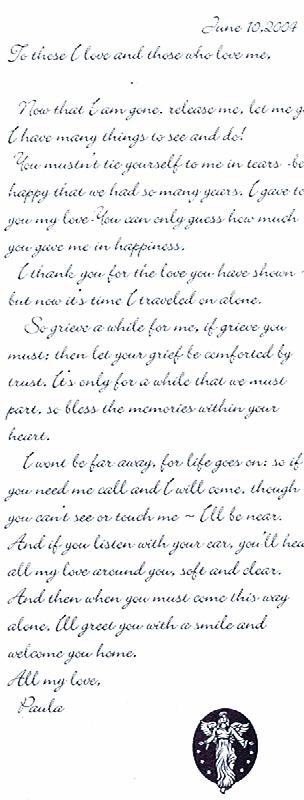 June 10,2004
To those I love and those who love me,
Now that I am gone. release me, let me g
I have many things to see and do!
You mustn't tie yourself to me in tears -be
happy that we had so many years. I gave to
you my love-You can only guess how much
you gave me in happiness.
I thank you for the love you have shown -
but now it's time I traveled on alone.
So grieve a while for me, if grieve you
must; then let your grief be comforted by
trust. It's only for a while that we must
part, so bless the memories within your
heart.
I wont be far away, for life goes on; so if
you need me call and I will come, though
you can't see or touch me ~ I'll be near.
And if you listen with your ear, you'll hea
all my love around you, soft and clear.
And then when you must come this way
alone. I'll greet you with a smile and
welcome you home.
All my love,
Paula